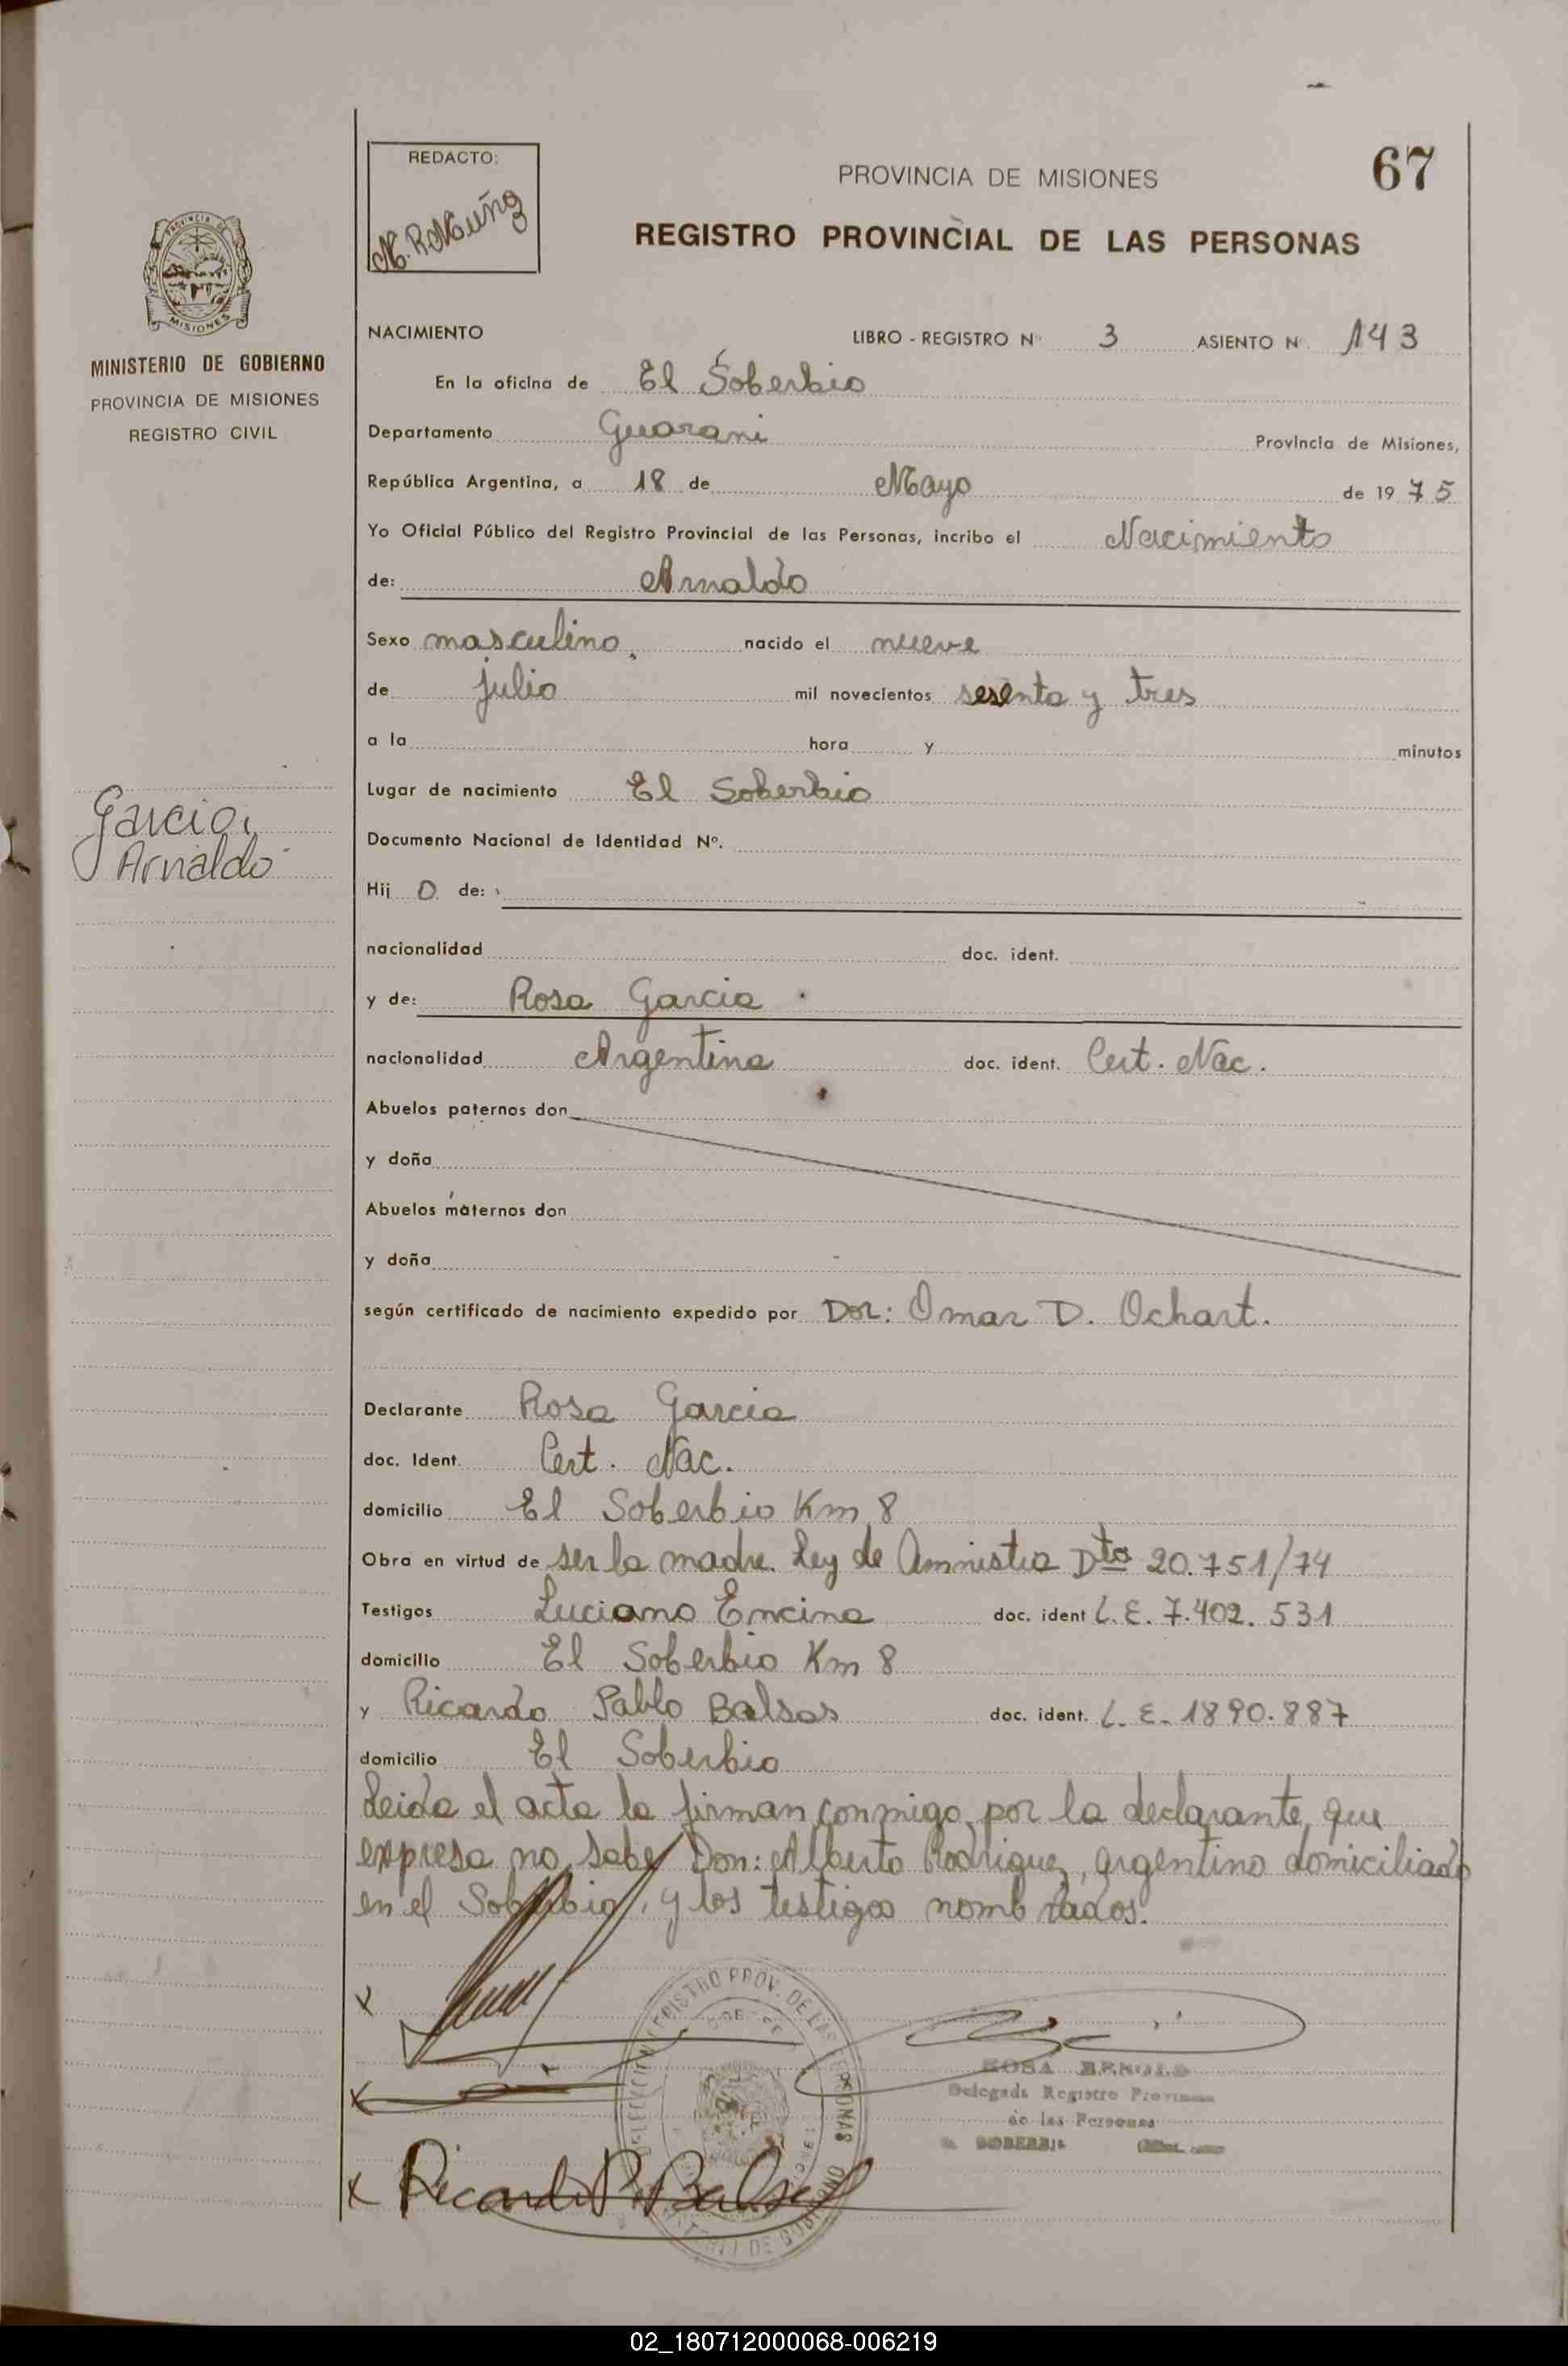 67
REDACTO:
PROVINCIA DE MISIONES
REGISTRO PROVINCIAL DE LAS PERSONAS
PROVINCIA DE
MISIONES
MINISTERIO DE GOBIERNO
PROVINCIA DE MISIONES
REGISTRO CIVIL
NACIMIENTO LIBRO - REGISTRO N° 3 ASIENTO N. 143
En la oficina de El Soberbio
Departamento Guarani Provincia de Misiones,
República Argentina, a 18 de Mayo de 1975
Yo Oficial Público del Registro Provincial de las Personas, incribo el Nacimiento
de: Arnaldo
Sexo masculino, nacido el nueve
de julio mil novecientos sesenta y tres
a la hora y minutos
Lugar de nacimiento El Soberbio
Garcia,
Arnaldo
Documento Nacional de Identidad Nº.
Hij o de:
nacionalidad doc. ident.
y de: Rosa Garcia
nacionalidad Argentina doc. ident. Cert. Nac.
Abuelos paternos don
y doña
Abuelos maternos don
y doña
según certificado de nacimiento expedido por Dor: Omar D. Ochart.
Declarante Rosa Garcia
doc. Ident. Cert. Nac.
domicilio El Soberbio Km 8
Obra en virtud de ser la madre. Ley de Amnistia Dto 20.751/74
Testigos Luciano Encina doc. ident L.E. 7.402.531
domicilio El Soberbio Km 8
y Ricardo Pablo Balsas doc. ident. L.E. 1890.887
domicilio El Soberbio
Leida el acta la firman conmigo, por la declarante, que
expresa no saber Don: Alberto Rodriguez, argentino domiciliado
en el Soberbio, y los testigos nombrados.
x
x
x Ricardo P. Balsas
REGISTRO PROV. DE LAS PERSONAS
Delegada Registro Provincial
de las Personas
02_180712000068-006219